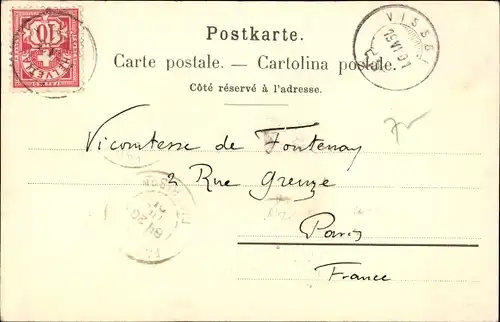 10
HELVETIA
Postkarte.
Carte postale. — Cartolina postale.
Côté réservé à l'adresse.
19 VI 01
Vicomtesse de Fontenay
2 Rue Greuze
Paris
France